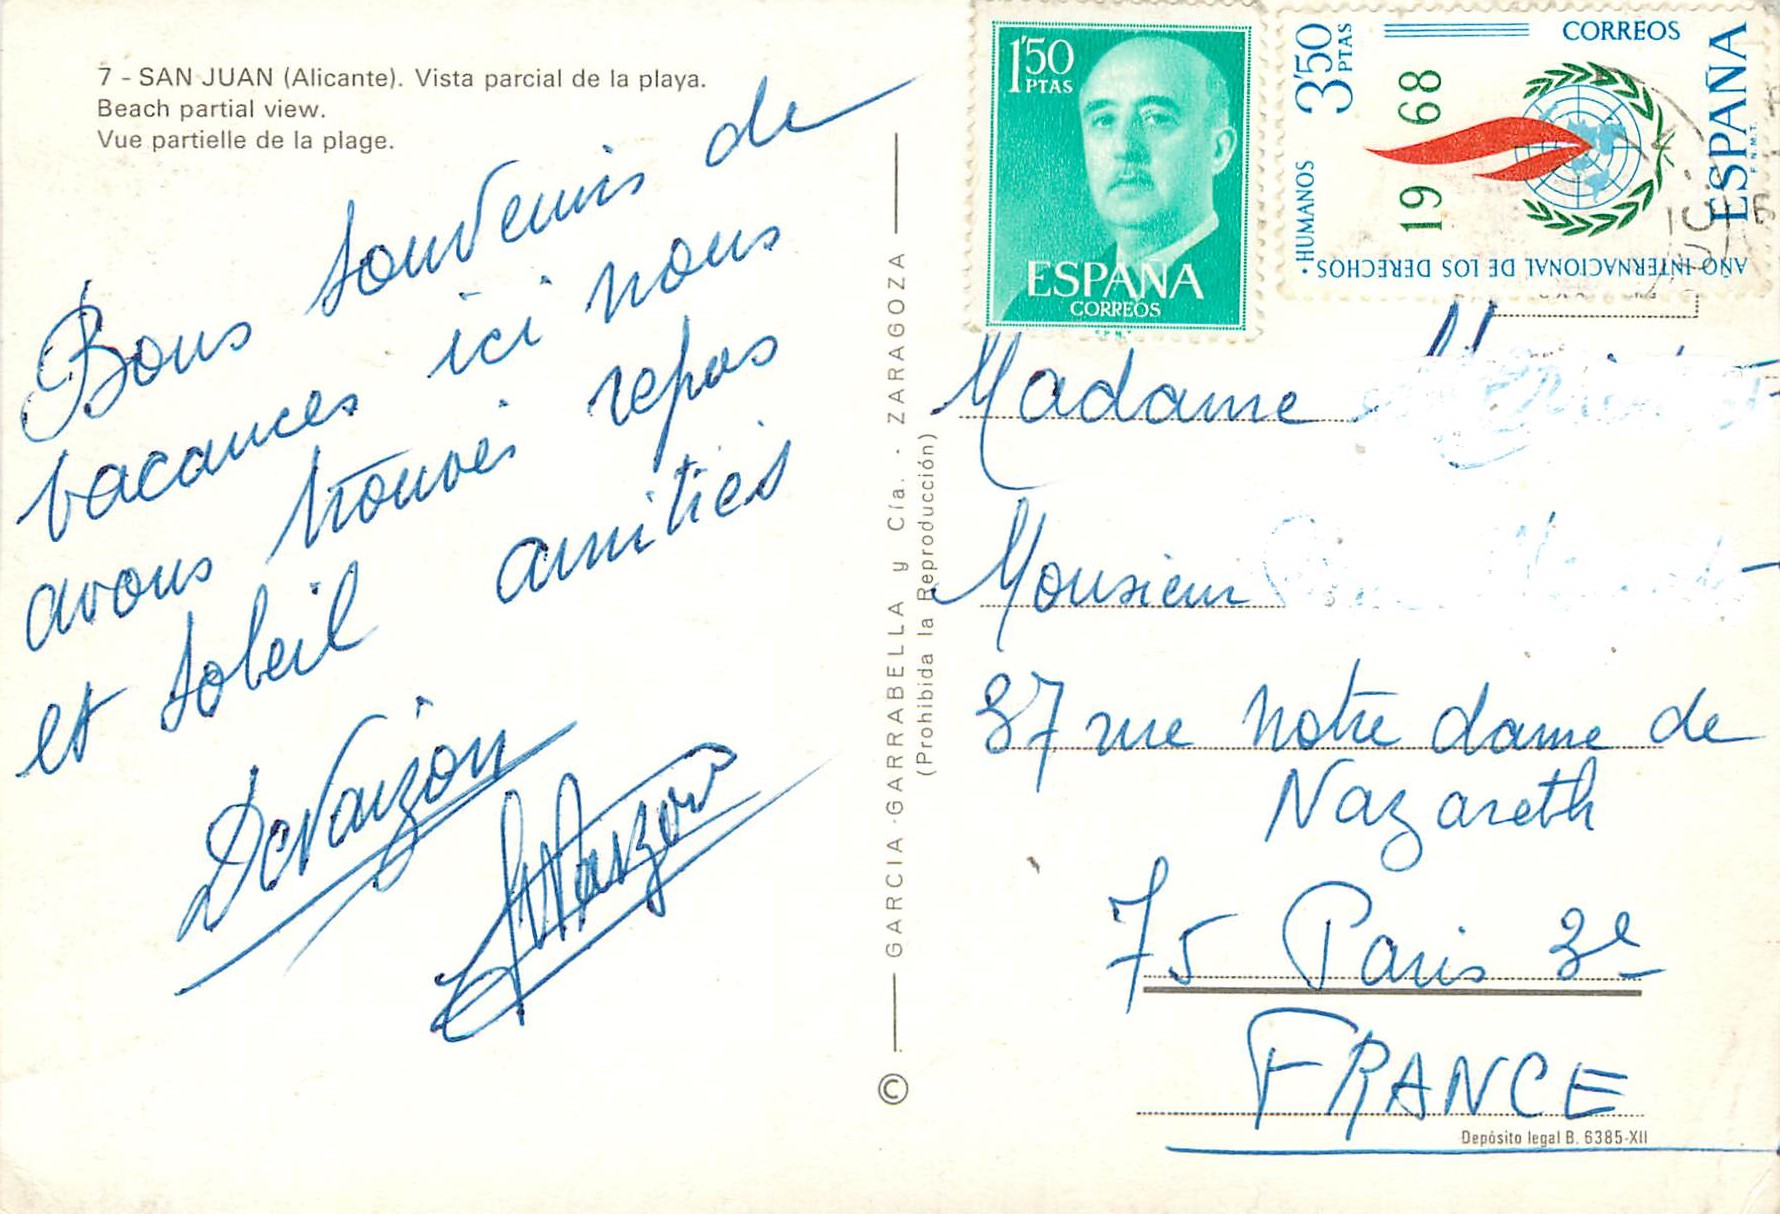 7 - SAN JUAN (Alicante). Vista parcial de la playa.
Beach partial view.
Vue partielle de la plage.
Bons souvenirs de
vacances ici nous
avons trouvé repos
et soleil amitiés
DeVaizon
1'50
PTAS
ESPAÑA
CORREOS
3'50 PTAS
CORREOS
ESPAÑA
F.N.M.T.
1968
AÑO INTERNACIONAL DE LOS DERECHOS
HUMANOS
GARCIA GARRABELLA y Cía. - ZARAGOZA
(Prohibida la Reproducción)
©
Madame
Monsieur
37 rue Notre dame de
Nazareth
75 Paris 3e
FRANCE
Depósito legal B. 6385-XII